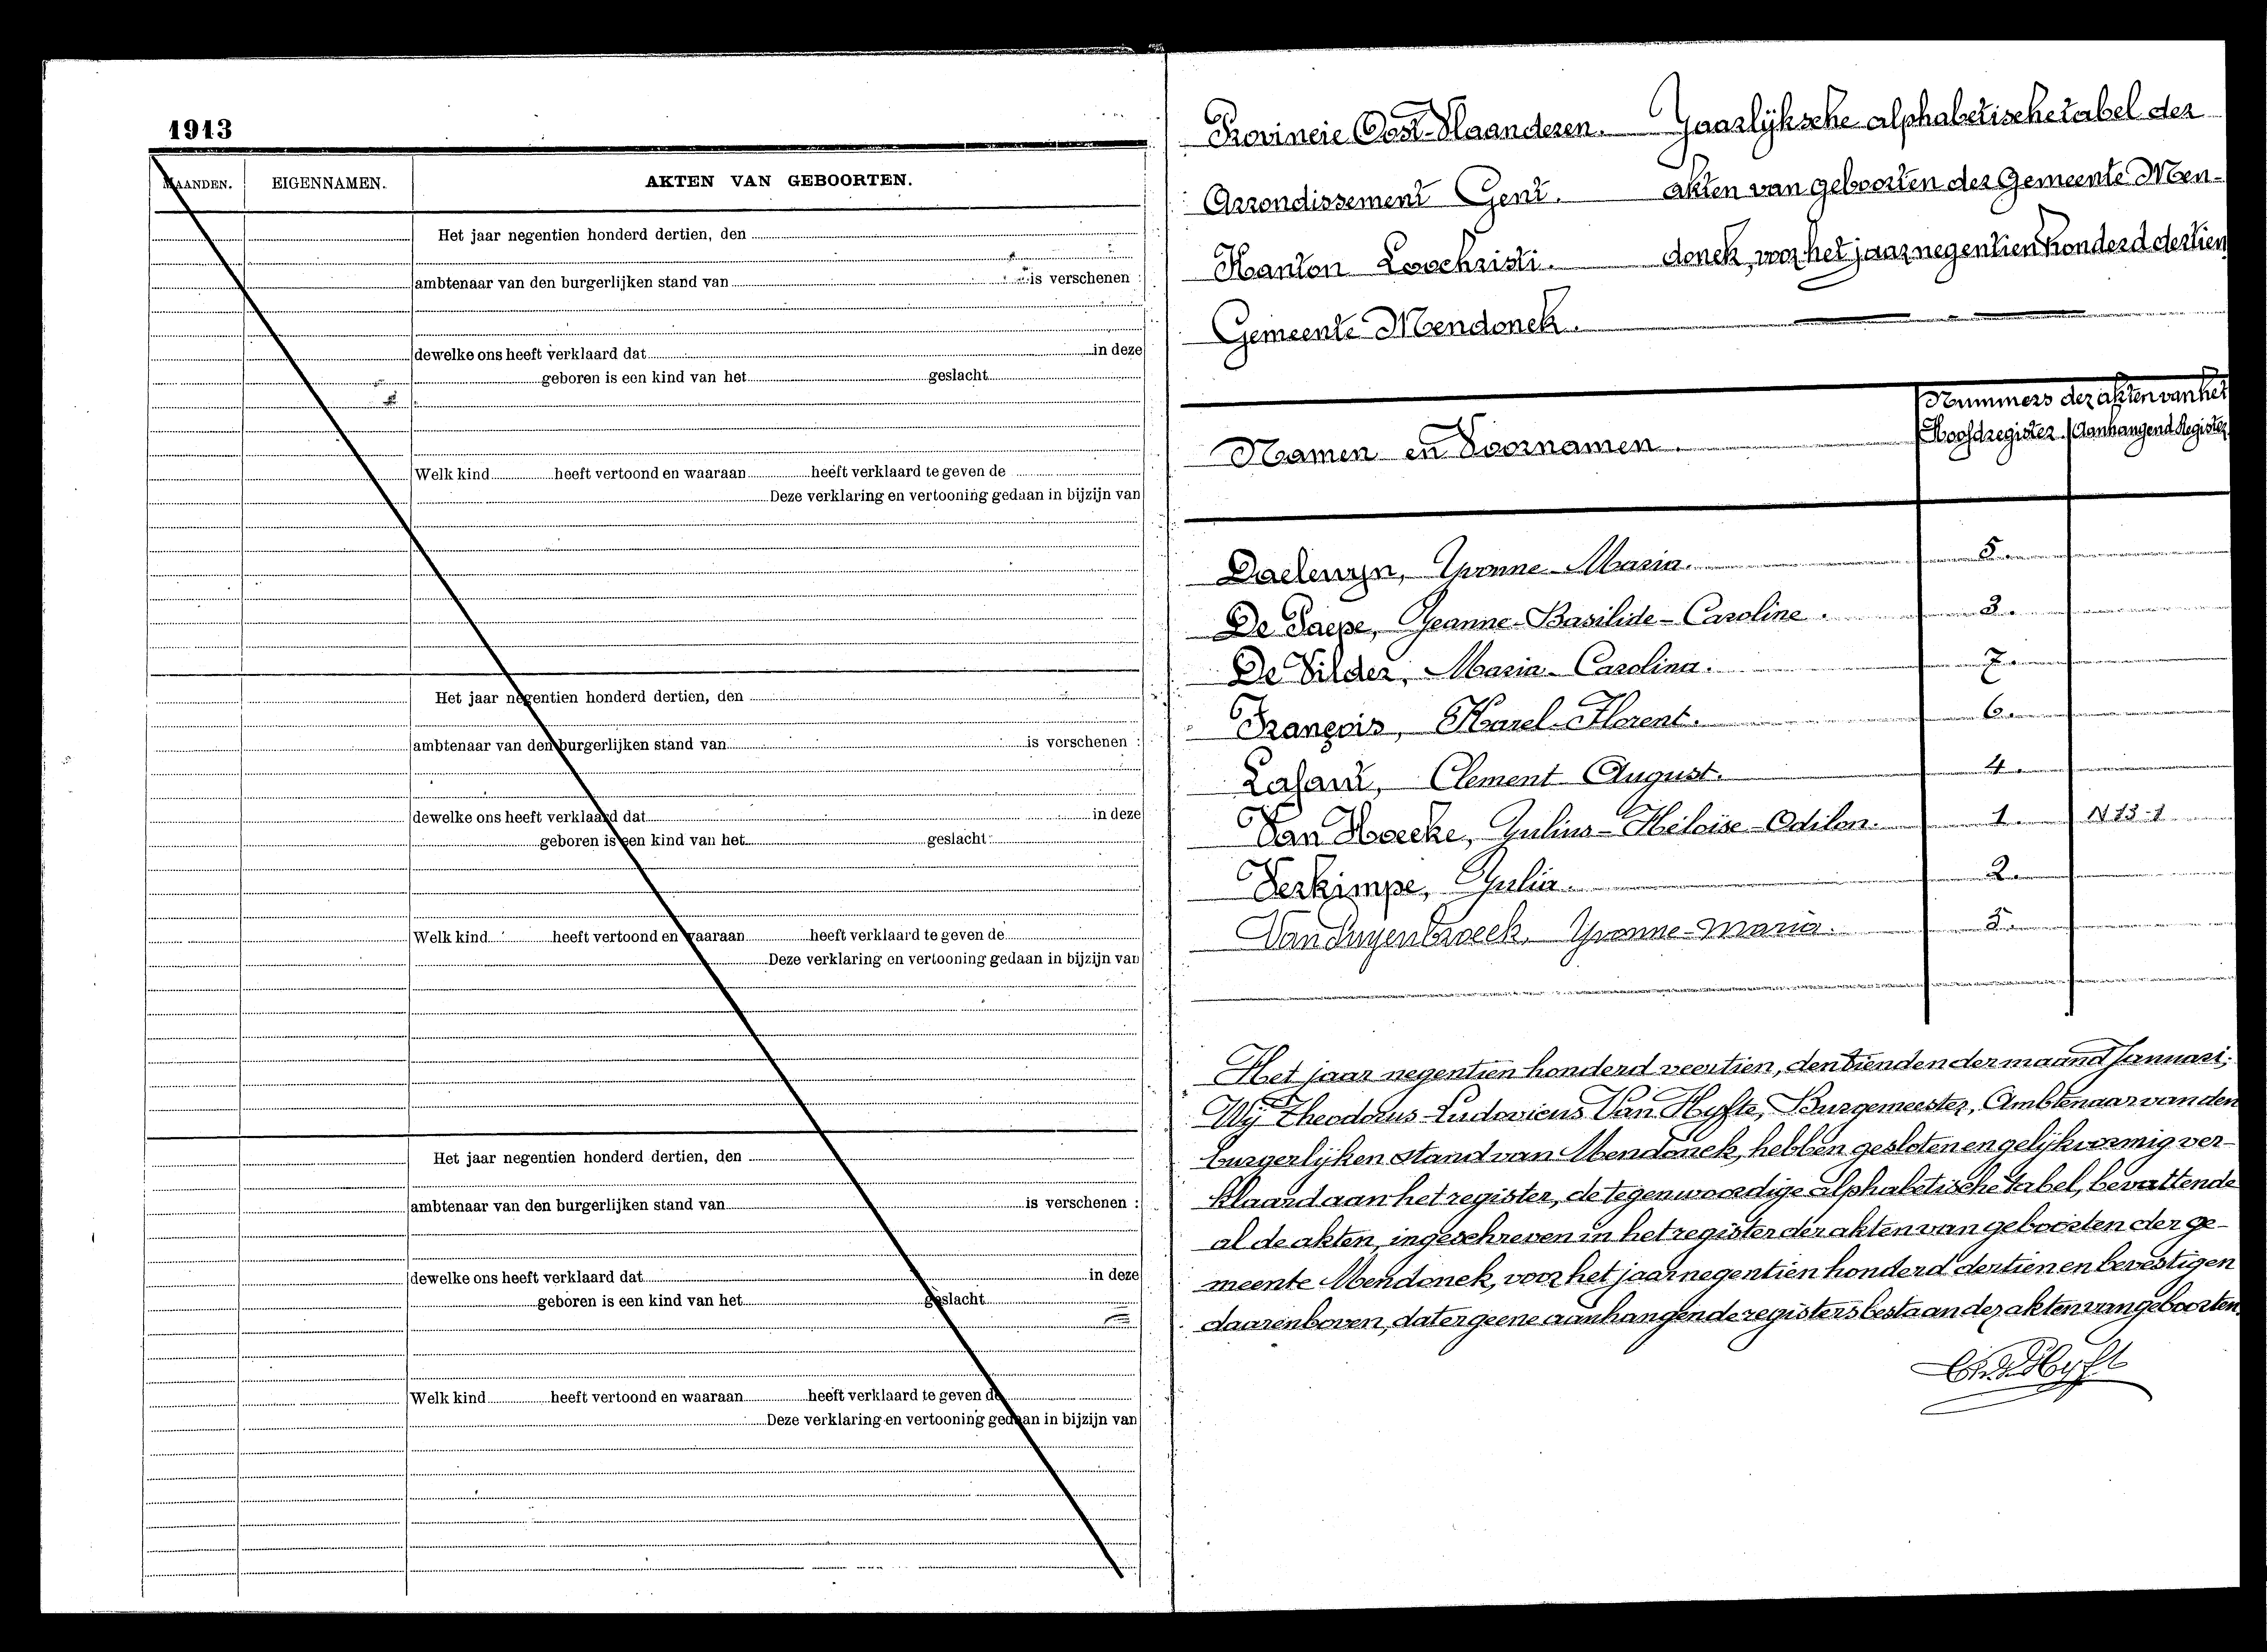 1913
MAANDEN. EIGENNAMEN. AKTEN VAN GEBOORTEN.
Het jaar negentien honderd dertien, den
ambtenaar van den burgerlijken stand van is verschenen :
dewelke ons heeft verklaard dat in deze
geboren is een kind van het geslacht
Welk kind heeft vertoond en waaraan heeft verklaard te geven de
Deze verklaring en vertooning gedaan in bijzijn van
Het jaar negentien honderd dertien, den
ambtenaar van den burgerlijken stand van is verschenen :
dewelke ons heeft verklaard dat in deze
geboren is een kind van het geslacht
Welk kind heeft vertoond en waaraan heeft verklaard te geven de
Deze verklaring en vertooning gedaan in bijzijn van
Het jaar negentien honderd dertien, den
ambtenaar van den burgerlijken stand van is verschenen :
dewelke ons heeft verklaard dat in deze
geboren is een kind van het geslacht
Welk kind heeft vertoond en waaraan heeft verklaard te geven de
Deze verklaring en vertooning gedaan in bijzijn van
Provincie Oost-Vlaanderen. Jaarlijksche alphabetische tabel der
Arrondissement Gent. akten van geboorten der Gemeente Men-
Kanton Loochristi. donck, voor het jaar negentien honderd dertien
Gemeente Mendonck.
Nummers der akten van het
Namen en Voornamen. Hoofdregister. Aanhangend Register
Daelewyn, Yvonne-Maria. 5.
De Paepe, Jeanne-Basilide-Caroline. 3.
De Vilder, Maria-Carolina. 7.
François, Karel-Florent. 6.
Lafaut, Clement-August. 4.
Van Hoecke, Julius-Héloïse-Odilon. 1. N 13-1
Verkimpe, Julia. 2.
Van Puyenbroeck, Yvonne-Maria. 5.
Het jaar negentien honderd veertien, den tienden der maand Januari;
Wij Theodorus-Ludovicus Van Hyfte, Burgemeester, Ambtenaar van den
burgerlijken stand van Mendonck, hebben gesloten en gelijkvormig ver-
klaard aan het register, de tegenwoordige alphabetische tabel, bevattende
al de akten, ingeschreven in het register der akten van geboorten der ge-
meente Mendonck, voor het jaar negentien honderd dertien en bevestigen
daarenboven, dat er geene aanhangende registers bestaan der akten van geboorten.